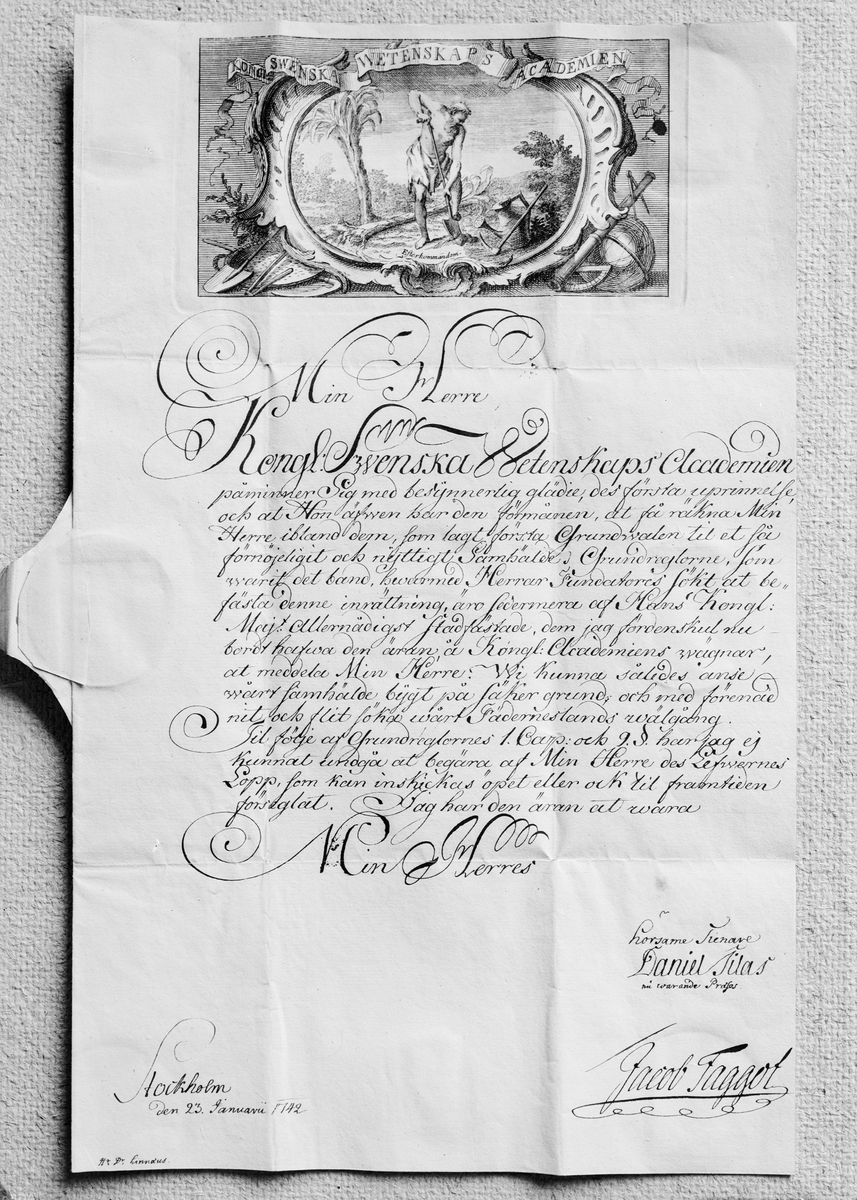 KONGL. SWENSKA WETENSKAPS ACADEMIEN
Efterkommandom.
Min Herre
Kongl: Swenska Wetenskaps Academien
påminner Sig med besynnerlig glädie, des första uprinnelse,
och at Hon äfwen har den förmånen, at få räkna Min
Herre ibland dem, som lagt första Grundwalen til et så
förnöjeligit och nyttigt Samhälde; Grundreglorne, som
warit det band, hwarmed Herrar Fundatores sökt at be-
fästa denne inrättning, äro sedermera af Hans Kongl:
Maj:t Allernådigst stadfästade, dem jag fördenskul nu
bordt hafwa den äran å Kongl: Academiens wägnar,
at meddela Min Herre: Wi kunna således anse
wårt samhälde bygt på säker grund, och med förenad
nit och flit söka wårt Fäderneslands wälgång.
Til följe af Grundreglornes 1. Cap: och 9. § har jag ej
kunnat undgå at begära af Min Herre des Lefwernes
Lopp, som kan inskickas öpet eller ock til framtiden
förseglat. Jag har den äran at wara
Min Herres
hörsame Tienare
Daniel Tilas
nu warande Præses
Jacob Faggot
Stockholm
den 23. Januarii 1742
Hr Dr Linnæus.